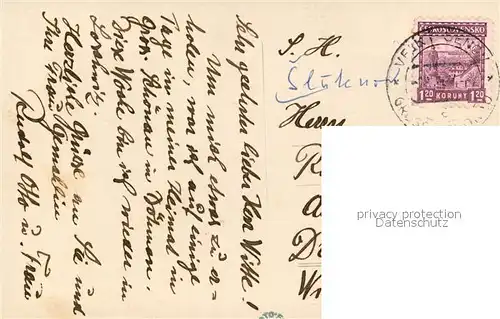 Sehr geehrter lieber Herr Witte!
Um mich etwas zu er-
holen, war ich auf einige
Tage in meiner Heimat in
Groß. Schönau in Böhmen.
Diese Woche bin ich wieder in
Herzliche Grüße an Sie und
Ihre Frau Gemahlin
Rudolf Otto u. Frau
S. H.
Herrn
R
D
W
ČESKOSLOVENSKO
1.20 KORUNY 1.20
privacy protection
Datenschutz